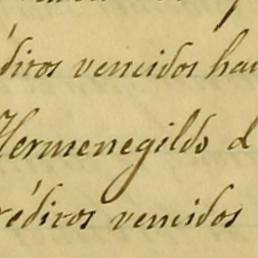 ditos vencidos hau
Hermenegildo d
réditos vencidos